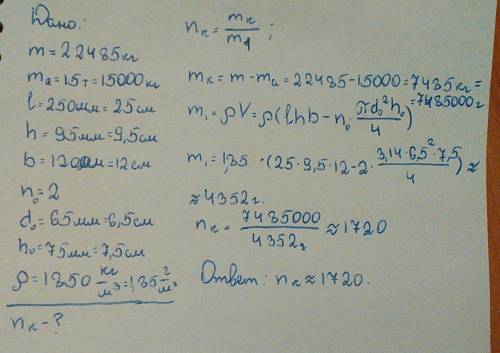 Дано:
m = 22485кг
mа = 15т = 15000кг
l = 250мм = 25см
h = 95мм = 9,5см
b = 120мм = 12см
n₀ = 2
d₀ = 65мм = 6,5см
h₀ = 75мм = 7,5см
ρ = 1850 кг/м³ = 1,85 г/м³
nк - ?
nк = mк/m₁ ;
mк = m - mа = 22485 - 15000 = 7485кг =
= 7485000г
m₁ = ρV = ρ(lhb - n₀ πd₀²h₀/4)
m₁ = 1,85 · (25 · 9,5 · 12 - 2 · 3,14 · 6,5² · 7,5/4) ≈
≈ 4352г.
nк = 7485000/4352г ≈ 1720
Ответ: nк ≈ 1720.